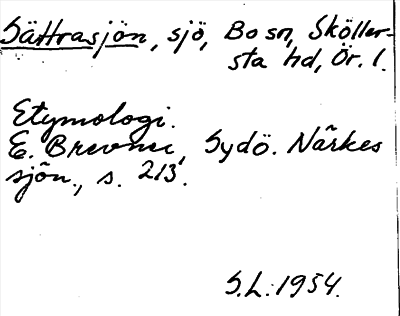 Sättrasjön, sjö, Bo sn, Sköller-
sta hd, Ör. l.
Etymologi.
E. Brevner, Sydö. Närkes
sjön., s. 213.
S.L. 1954.